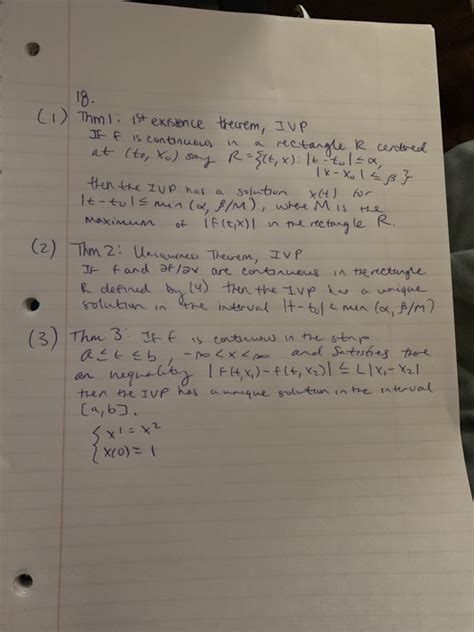 18.
(1) Thm 1: 1st existence theorem, IVP
If f is continuous in a rectangle R centred
at (t₀, x₀) say R = {(t, x): |t - t₀| ≤ α,
|x - x₀| ≤ β}
then the IVP has a solution x(t) for
|t - t₀| ≤ min (α, β/M), where M is the
maximum of |f(t,x)| in the rectangle R.
(2) Thm 2: Uniqueness Theorem, IVP
If f and ∂f/∂x are continuous in the rectangle
R defined by (4) then the IVP has a unique
solution in the interval |t - t₀| < min (α, β/M)
(3) Thm 3: If f is continuous in the strip
a ≤ t ≤ b, -∞ < x < ∞ and satisfies there
an inequality |f(t, x₁) - f(t, x₂)| ≤ L|x₁ - x₂|
then the IVP has a unique solution in the interval
[a, b].
{ x' = x²
x(0) = 1